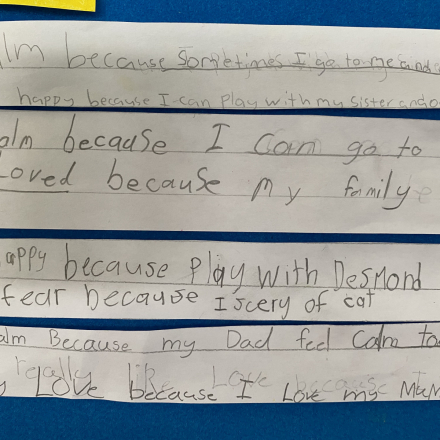 alm because Sometimes I go to me and
happy because I can play with my sister and
alm because I can go to
Loved because my family
appy because Play With Desmond
fear because I scery of cat
alm Because my Dad feel Calm to
really Love because I Love my Mum